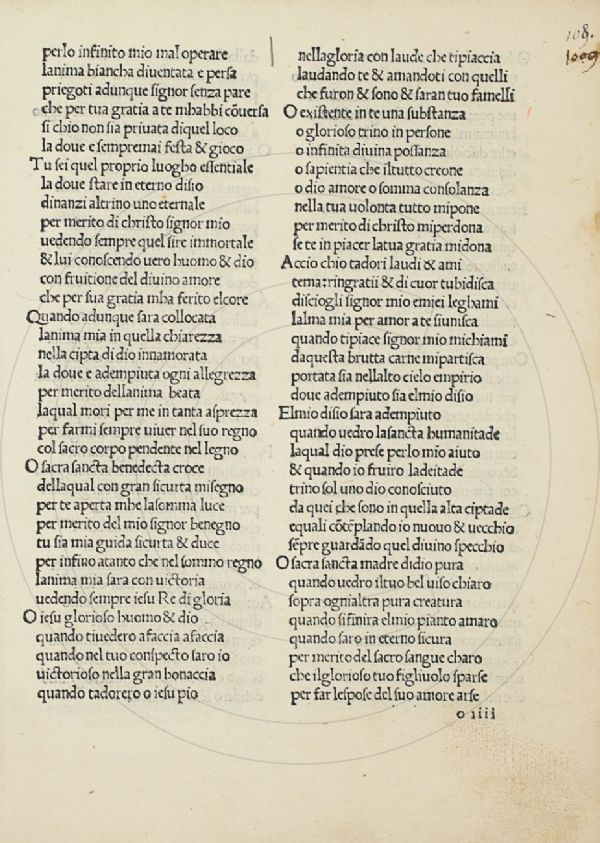 108.
1009
perlo infinito mio mal operare
lanima biancha diuentata e persa
priegoti adunque signor senza pare
che per tua gratia a te mhabbi cõuersa
si chio non sia priuata diquel loco
la doue e sempremai festa & gioco
Tu sei quel proprio luogho essentiale
la doue stare in eterno disio
dinanzi altrino uno eternale
per merito di christo signor mio
uedendo sempre quel sire immortale
& lui conoscendo uero huomo & dio
con fruitione del diuino amore
che per sua gratia mha ferito elcore
Quando adunque sara collocata
lanima mia in quella chiarezza
nella cipta di dio innamorata
la doue e adempiuta ogni allegrezza
per merito dellanima beata
laqual mori per me in tanta asprezza
per farmi sempre uiuer nel suo regno
col sacro corpo pendente nel legno
O sacra sancta benedecta croce
dellaqual con gran sicurta misegno
per te aperta mhe lasomma luce
per merito del mio signor benegno
tu sia mia guida sicurta & duce
per infino atanto che nel sommo regno
lanima mia sara con uictoria
uedendo sempre iesu Re di gloria
O iesu glorioso huomo & dio
quando tiuedero afaccia afaccia
quando nel tuo conspecto saro io
uictorioso nella gran bonaccia
quando tadorero o iesu pio
nellagloria con laude che tipiaccia
laudando te & amandoti con quelli
che furon & sono & saran tuo famelli
O existente in te una substanza
o glorioso trino in persone
o infinita diuina possanza
o sapientia che iltutto creone
o dio amore o somma consolanza
nella tua uolonta tutto mipone
per merito di christo miperdona
se te in piacer latua gratia midona
Accio chio tadori laudi & ami
tema:ringratii & di cuor tubidisca
disciogli signor mio emiei leghami
lalma mia per amor a te siunisca
quando tipiace signor mio michiami
daquesta brutta carne mipartisca
portata sia nellalto cielo empirio
doue adempiuto sia elmio disio
Elmio disio sara adempiuto
quando uedro lasancta humanitade
laqual dio prese perlo mio aiuto
& quando io fruiro ladeitade
trino sol uno dio conosciuto
da quei che sono in quella alta ciptade
equali cõtẽplando io nuouo & uecchio
sẽpre guardãdo quel diuino specchio
O sacra sancta madre didio pura
quando uedro iltuo bel uiso chiaro
sopra ognialtra pura creatura
quando sifinira elmio pianto amaro
quando saro in eterno sicura
per merito del sacro sangue charo
che ilglorioso tuo figliuolo sparse
per far lespose del suo amore arse
o iiii